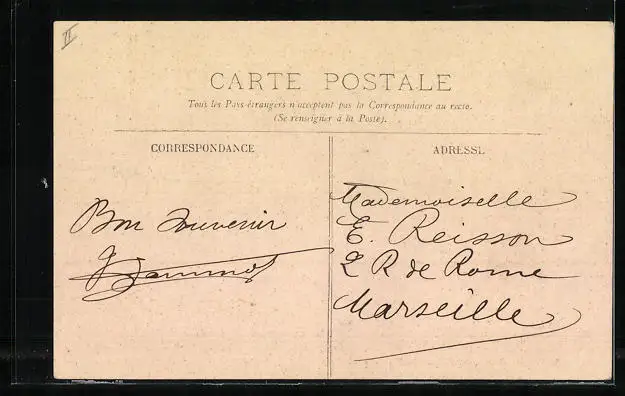 II
CARTE POSTALE
Tous les Pays étrangers n'acceptent pas la Correspondance au recto.
(Se renseigner à la Poste).
CORRESPONDANCE
ADRESSE
Bon Souvenir
Mademoiselle
E. Reisson
2 R de Rome
Marseille